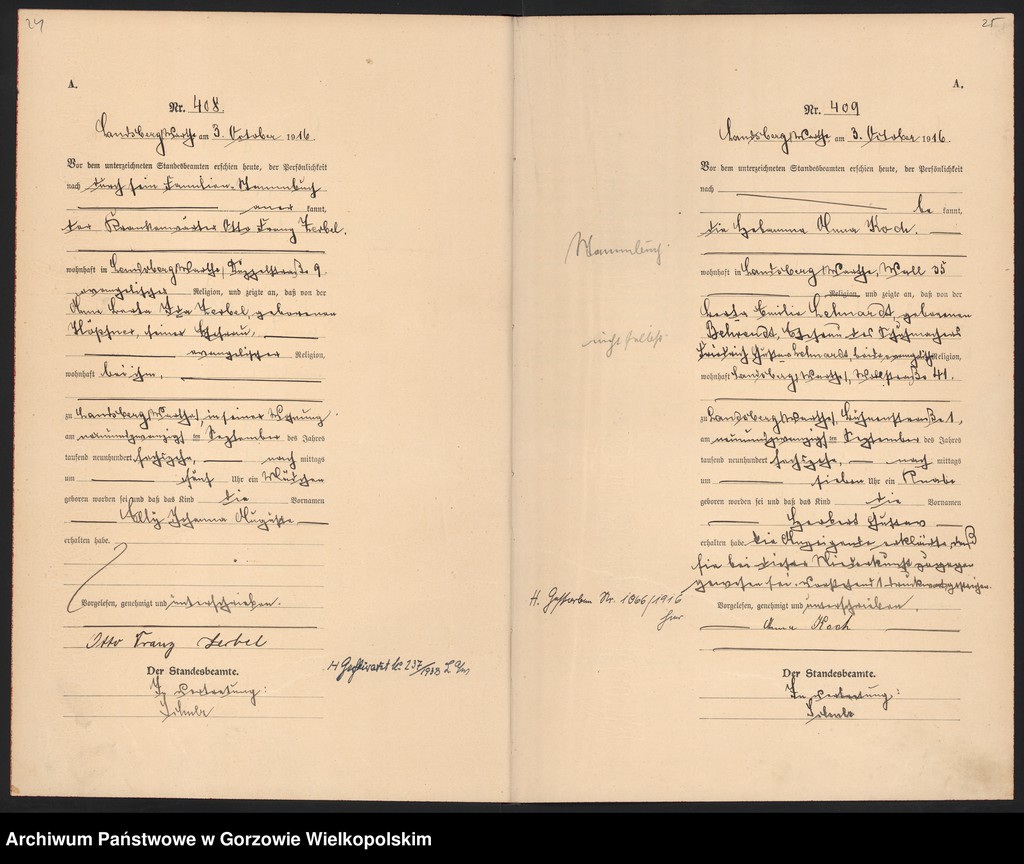 24
A.
Nr. 408.
Landsberg Warthe am 3. October 1916.
Vor dem unterzeichneten Standesbeamten erschien heute, der Persönlichkeit
nach durch sein Familien-Stammbuch
aner kannt,
der Krankenwärter Otto Franz Zerbel.
wohnhaft in Landsberg Warthe, 9
evangelischer Religion, und zeigte an, daß von der
Anna Berta Ida Zerbel, geborenen
Höpfner, seiner Ehefrau,
evangelischer Religion,
wohnhaft bei ihm,
zu Landsberg Warthe, in seiner Wohnung
am neunundzwanzigsten September des Jahres
tausend neunhundert sechszehn, nach mittags
um fünf Uhr ein Mädchen
geboren worden sei und daß das Kind die Vornamen
Johanna Auguste
erhalten habe.
Vorgelesen, genehmigt und unterschrieben.
Otto Franz Zerbel
Der Standesbeamte.
In Vertretung:
H 237/1938
25
A.
Nr. 409
Landsberg Warthe am 3. October 1916.
Vor dem unterzeichneten Standesbeamten erschien heute, der Persönlichkeit
nach
be kannt,
die Hebamme Anna Koch.
wohnhaft in Landsberg Warthe, Wall 35
Religion, und zeigte an, daß von der
Berta Emilie Lehnardt, geborenen
Behrendt, Ehefrau des Schuhmachers
Friedrich Gustav Lehnardt, beide evangelisch Religion,
wohnhaft Landsberg Warthe, Wallstraße 41.
zu Landsberg Warthe, 1,
am neunundzwanzigsten September des Jahres
tausend neunhundert sechszehn, nach mittags
um sieben Uhr ein Knabe
geboren worden sei und daß das Kind die Vornamen
Herbert Gustav
erhalten habe. Die Anzeigende erklärte, daß
sie bei dieser Niederkunft zugegen
gewesen sei. Vorstehend 1 Druckwort gestrichen.
Vorgelesen, genehmigt und unterschrieben.
Anna Koch
Der Standesbeamte.
In Vertretung:
Stammbuch
H. Gestorben Nr. 1066/1916
hier
Archiwum Państwowe w Gorzowie Wielkopolskim